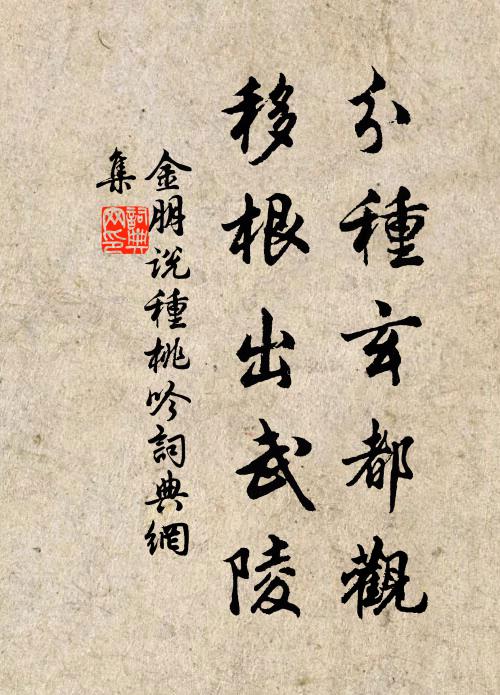 分種玄都觀
移根出武陵
金朋说種桃吟詞典網
集
詞典
网印